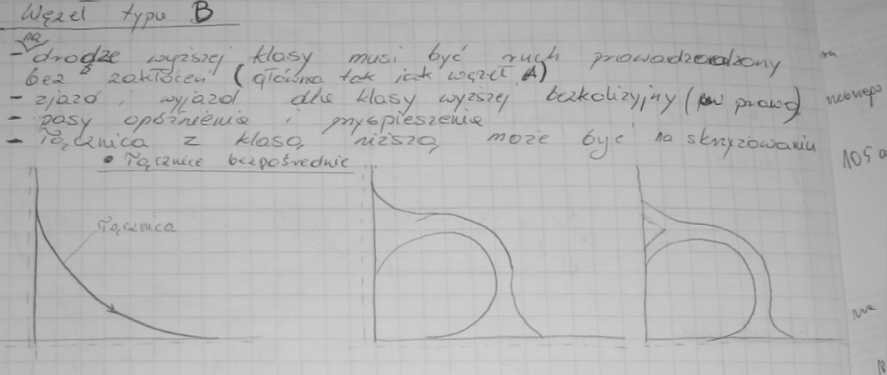 Węzeł typu B
na
- drodze wyższej klasy musi być ruch prowadzony
bez zakłóceń (główna tak jak węzeł A)
- zjazd, wyjazd dla klasy wyższej bezkolizyjny (w prawo)
- pasy opóźnienia i przyspieszenia
- Łącznica z klasą niższą może być na skrzyżowaniu
• Łącznice bezpośrednie
łącznica
105